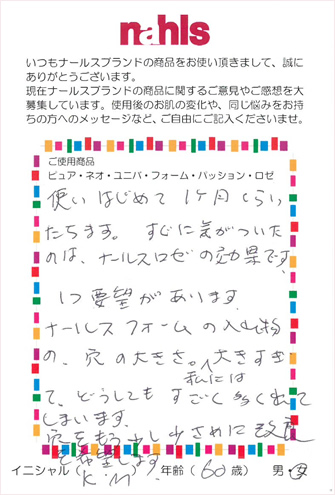 nahls
いつもナールスブランドの商品をお使い頂きまして、誠に
ありがとうございます。
現在ナールスブランドの商品に関するご意見やご感想を大
募集しています。使用後のお肌の変化や、同じ悩みをお持
ちの方へのメッセージなど、ご自由にご記入くださいませ。
ご使用商品
ピュア・ネオ・ユニバ・フォーム・パッション・ロゼ
使いはじめて 1ケ月くらい
たちます。 すぐに気がついた
のは、ナールスロゼの効果です。
1つ要望があります
ナールスフォームの入れ物
の、穴の大きさ。大きすぎ
私には
て、どうしてもすごく多くでて
しまいます。
穴をもう少し小さめに改良
を希望します。
イニシャル( K.M 年齢(60歳) 男・女